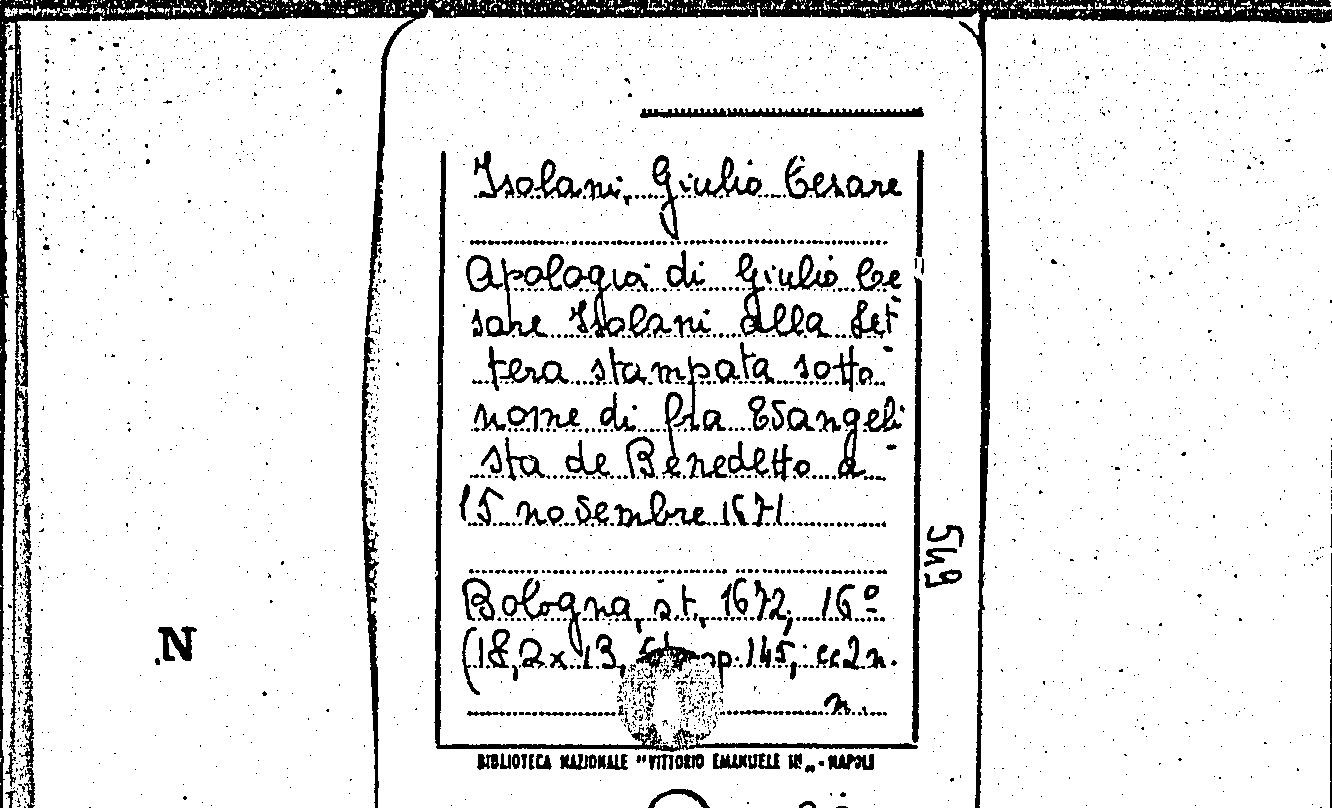 Isolani, Giulio Cesare
Apologia di Giulio Ce
sare Isolani alla Let
tera stampata sotto
nome di fra Evangeli
sta de Benedetto a
15 novembre 1671
549
Bologna, s.t., 1672, 16º
(18,2 x 13, pp. 145, cc2 n.
n.
N
BIBLIOTECA NAZIONALE "VITTORIO EMANUELE III„ - NAPOLI